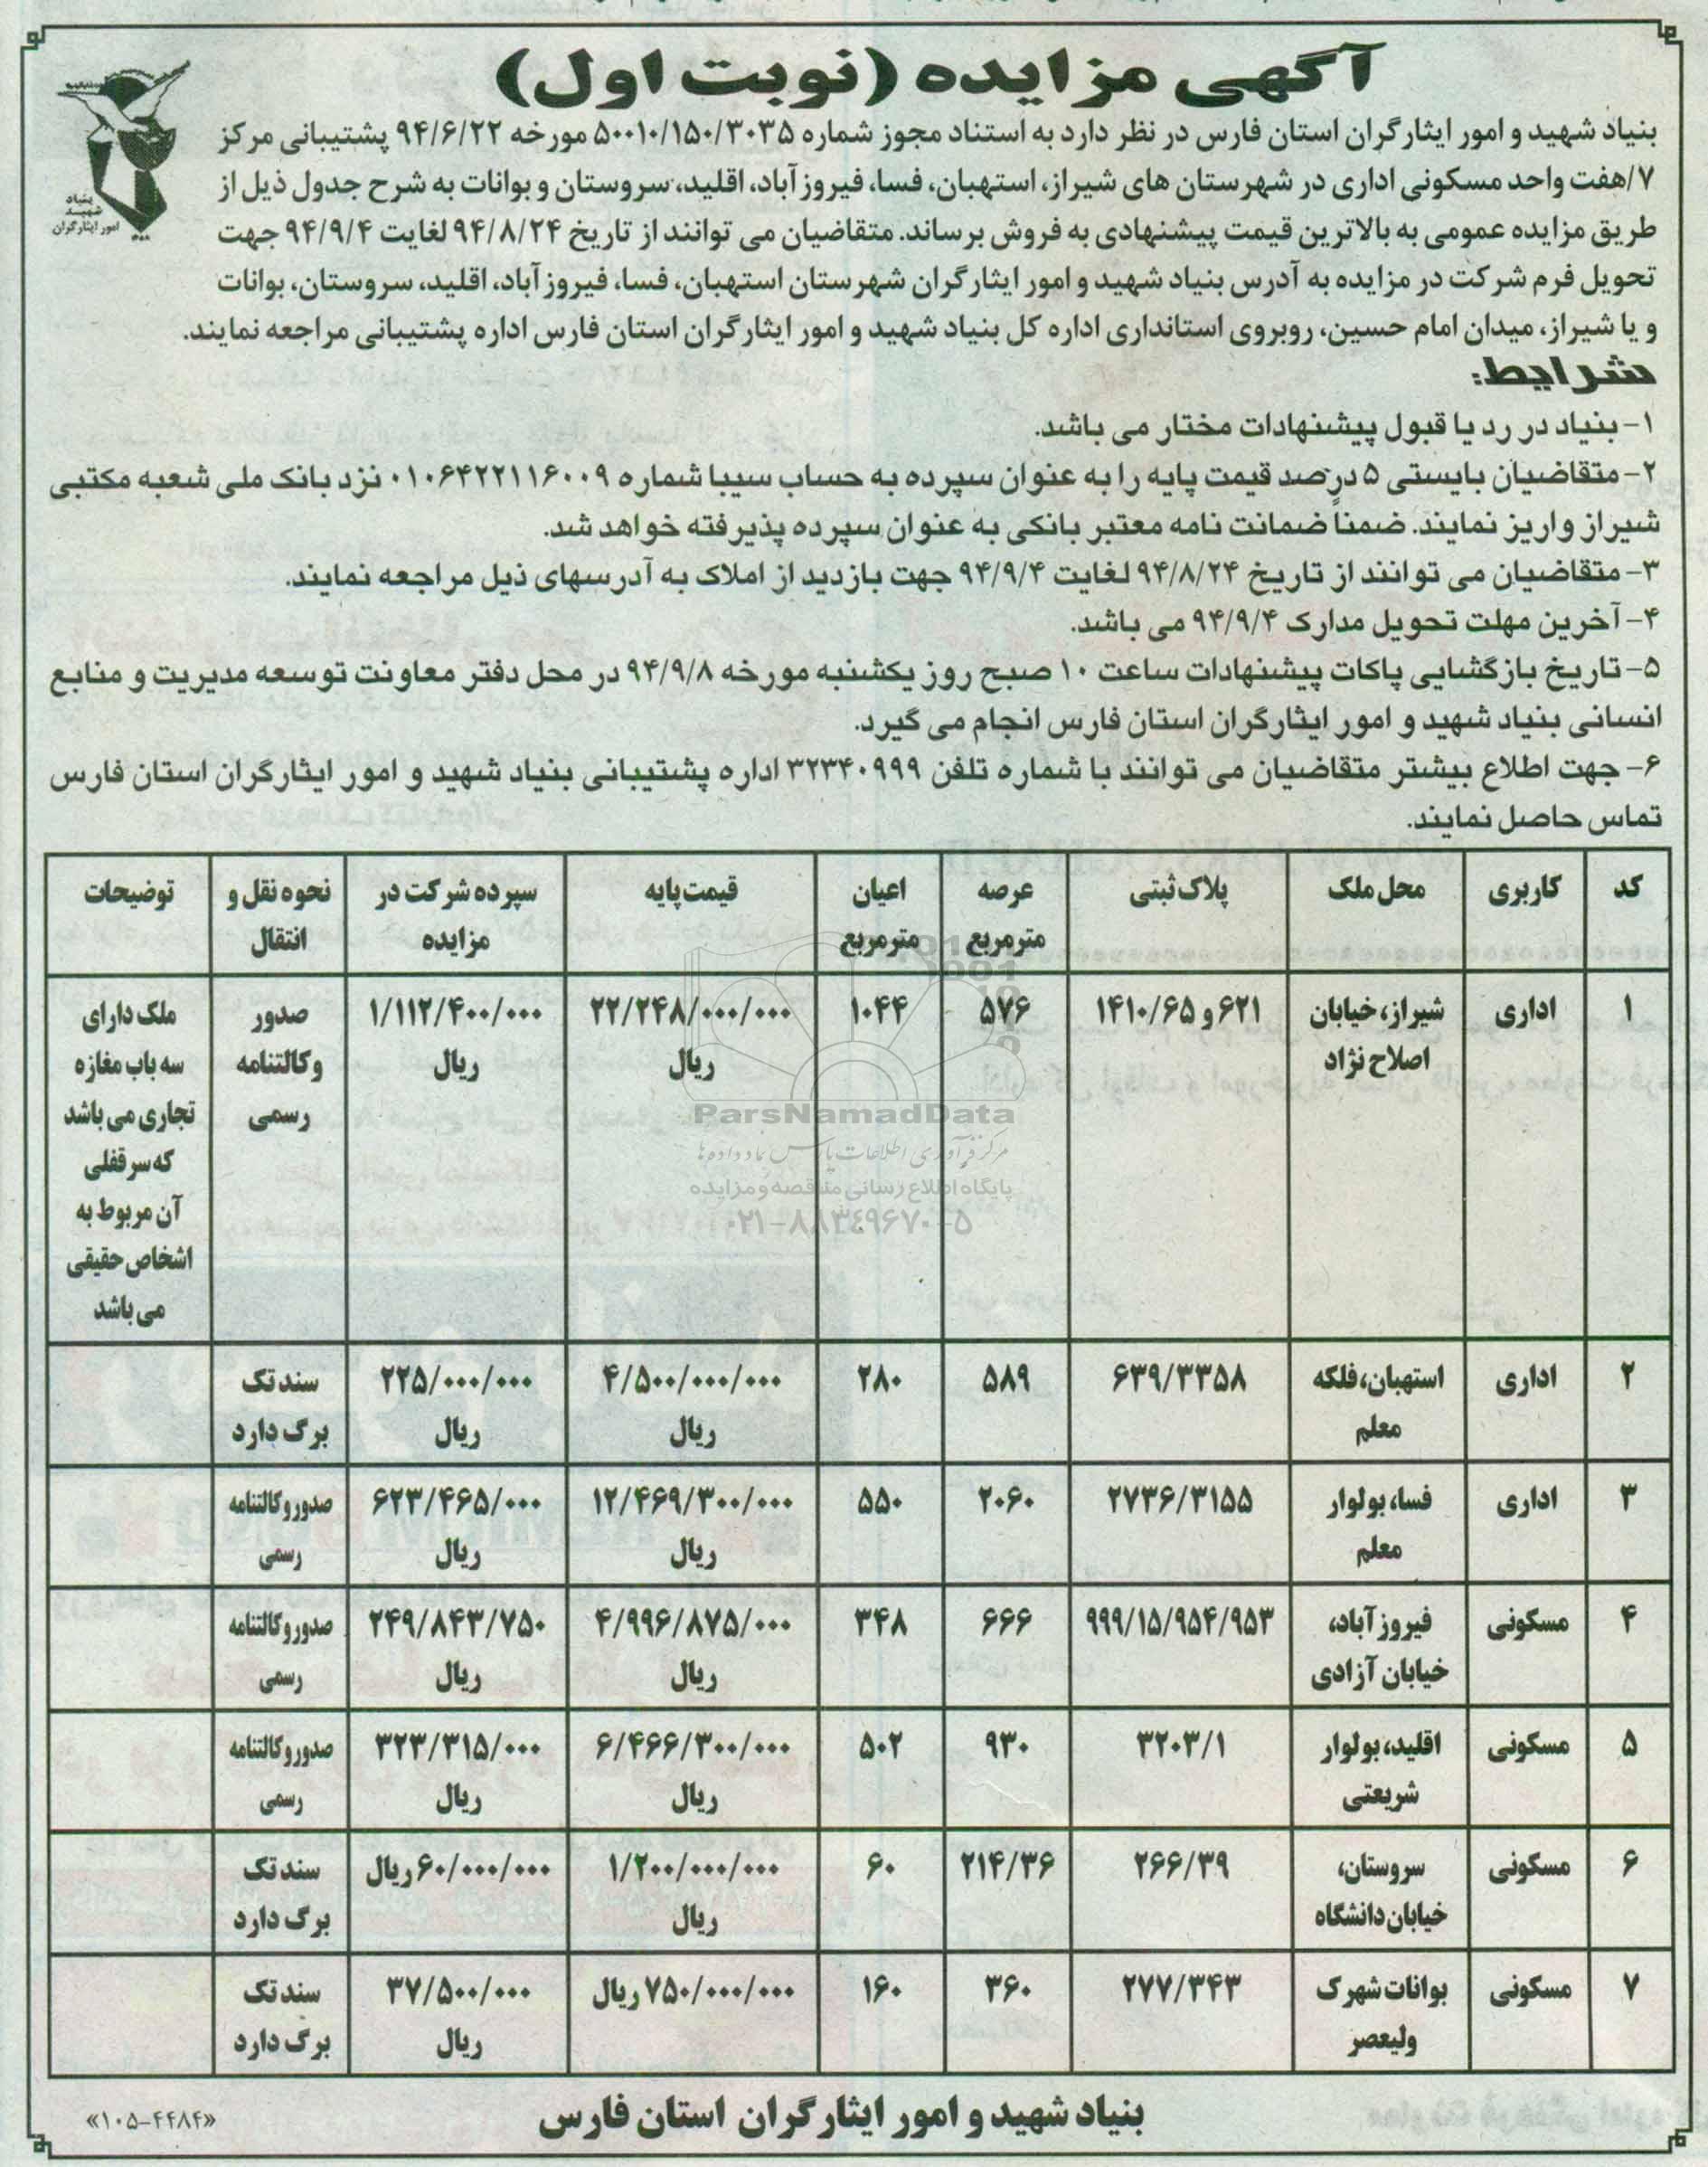 آگهی مزایده (نوبت اول)
بنیاد شهید و امور ایثارگران
بنیاد شهید و امور ایثارگران استان فارس در نظر دارد به استناد مجوز شماره ۵۰۰۱۰/۱۵۰/۳۰۳۵ مورخه ۹۴/۶/۲۲ پشتیبانی مرکز
۷/هفت واحد مسکونی اداری در شهرستان های شیراز، استهبان، فسا، فیروزآباد، اقلید، سروستان و بوانات به شرح جدول ذیل از
طریق مزایده عمومی به بالاترین قیمت پیشنهادی به فروش برساند. متقاضیان می توانند از تاریخ ۹۴/۸/۲۴ لغایت ۹۴/۹/۴ جهت
تحویل فرم شرکت در مزایده به آدرس بنیاد شهید و امور ایثارگران شهرستان استهبان، فسا، فیروزآباد، اقلید، سروستان، بوانات
و یا شیراز، میدان امام حسین، روبروی استانداری اداره کل بنیاد شهید و امور ایثارگران استان فارس اداره پشتیبانی مراجعه نمایند.
شرایط:
۱- بنیاد در رد یا قبول پیشنهادات مختار می باشد.
۲- متقاضیان بایستی ۵ درصد قیمت پایه را به عنوان سپرده به حساب سیبا شماره ۰۱۰۶۴۲۲۱۱۶۰۰۹ نزد بانک ملی شعبه مکتبی
شیراز واریز نمایند. ضمناً ضمانت نامه معتبر بانکی به عنوان سپرده پذیرفته خواهد شد.
۳- متقاضیان می توانند از تاریخ ۹۴/۸/۲۴ لغایت ۹۴/۹/۴ جهت بازدید از املاک به آدرسهای ذیل مراجعه نمایند.
۴- آخرین مهلت تحویل مدارک ۹۴/۹/۴ می باشد.
۵- تاریخ بازگشایی پاکات پیشنهادات ساعت ۱۰ صبح روز یکشنبه مورخه ۹۴/۹/۸ در محل دفتر معاونت توسعه مدیریت و منابع
انسانی بنیاد شهید و امور ایثارگران استان فارس انجام می گیرد.
۶- جهت اطلاع بیشتر متقاضیان می توانند با شماره تلفن ۳۲۳۴۰۹۹۹ اداره پشتیبانی بنیاد شهید و امور ایثارگران استان فارس
تماس حاصل نمایند.
کد کاربری محل ملک پلاک ثبتی عرصه مترمربع اعیان مترمربع قیمت پایه سپرده شرکت در مزایده نحوه نقل و انتقال توضیحات
۱ اداری شیراز، خیابان اصلاح نژاد ۶۲۱ و ۱۴۱۰/۶۵ ۵۷۶ ۱۰۴۴ ۲۲/۲۴۸/۰۰۰/۰۰۰ ریال ۱/۱۱۲/۴۰۰/۰۰۰ ریال صدور وکالتنامه رسمی ملک دارای سه باب مغازه تجاری می باشد که سرقفلی آن مربوط به اشخاص حقیقی می باشد
۲ اداری استهبان، فلکه معلم ۶۳۹/۳۳۵۸ ۵۸۹ ۲۸۰ ۴/۵۰۰/۰۰۰/۰۰۰ ریال ۲۲۵/۰۰۰/۰۰۰ ریال سند تک برگ دارد
۳ اداری فسا، بولوار معلم ۲۷۳۶/۳۱۵۵ ۲۰۶۰ ۵۵۰ ۱۲/۴۶۹/۳۰۰/۰۰۰ ریال ۶۲۳/۴۶۵/۰۰۰ ریال صدور وکالتنامه رسمی
۴ مسکونی فیروزآباد، خیابان آزادی ۹۹۹/۱۵/۹۵۴/۹۵۳ ۶۶۶ ۳۴۸ ۴/۹۹۶/۸۷۵/۰۰۰ ریال ۲۴۹/۸۴۳/۷۵۰ ریال صدور وکالتنامه رسمی
۵ مسکونی اقلید، بولوار شریعتی ۳۲۰۳/۱ ۹۳۰ ۵۰۲ ۶/۴۶۶/۳۰۰/۰۰۰ ریال ۳۲۳/۳۱۵/۰۰۰ ریال صدور وکالتنامه رسمی
۶ مسکونی سروستان، خیابان دانشگاه ۲۶۶/۳۹ ۲۱۴/۳۶ ۶۰ ۱/۲۰۰/۰۰۰/۰۰۰ ریال ۶۰/۰۰۰/۰۰۰ ریال سند تک برگ دارد
۷ مسکونی بوانات شهرک ولیعصر ۲۷۷/۳۴۳ ۳۶۰ ۱۶۰ ۷۵۰/۰۰۰/۰۰۰ ریال ۳۷/۵۰۰/۰۰۰ ریال سند تک برگ دارد
ParsNamadData
مرکز فرآوری اطلاعات پارس نماد داده ها
پایگاه اطلاع رسانی مناقصه و مزایده
۰۲۱-۸۸۳۴۹۶۷۰-۵
بنیاد شهید و امور ایثارگران استان فارس
«۱۰۵-۴۴۸۴»